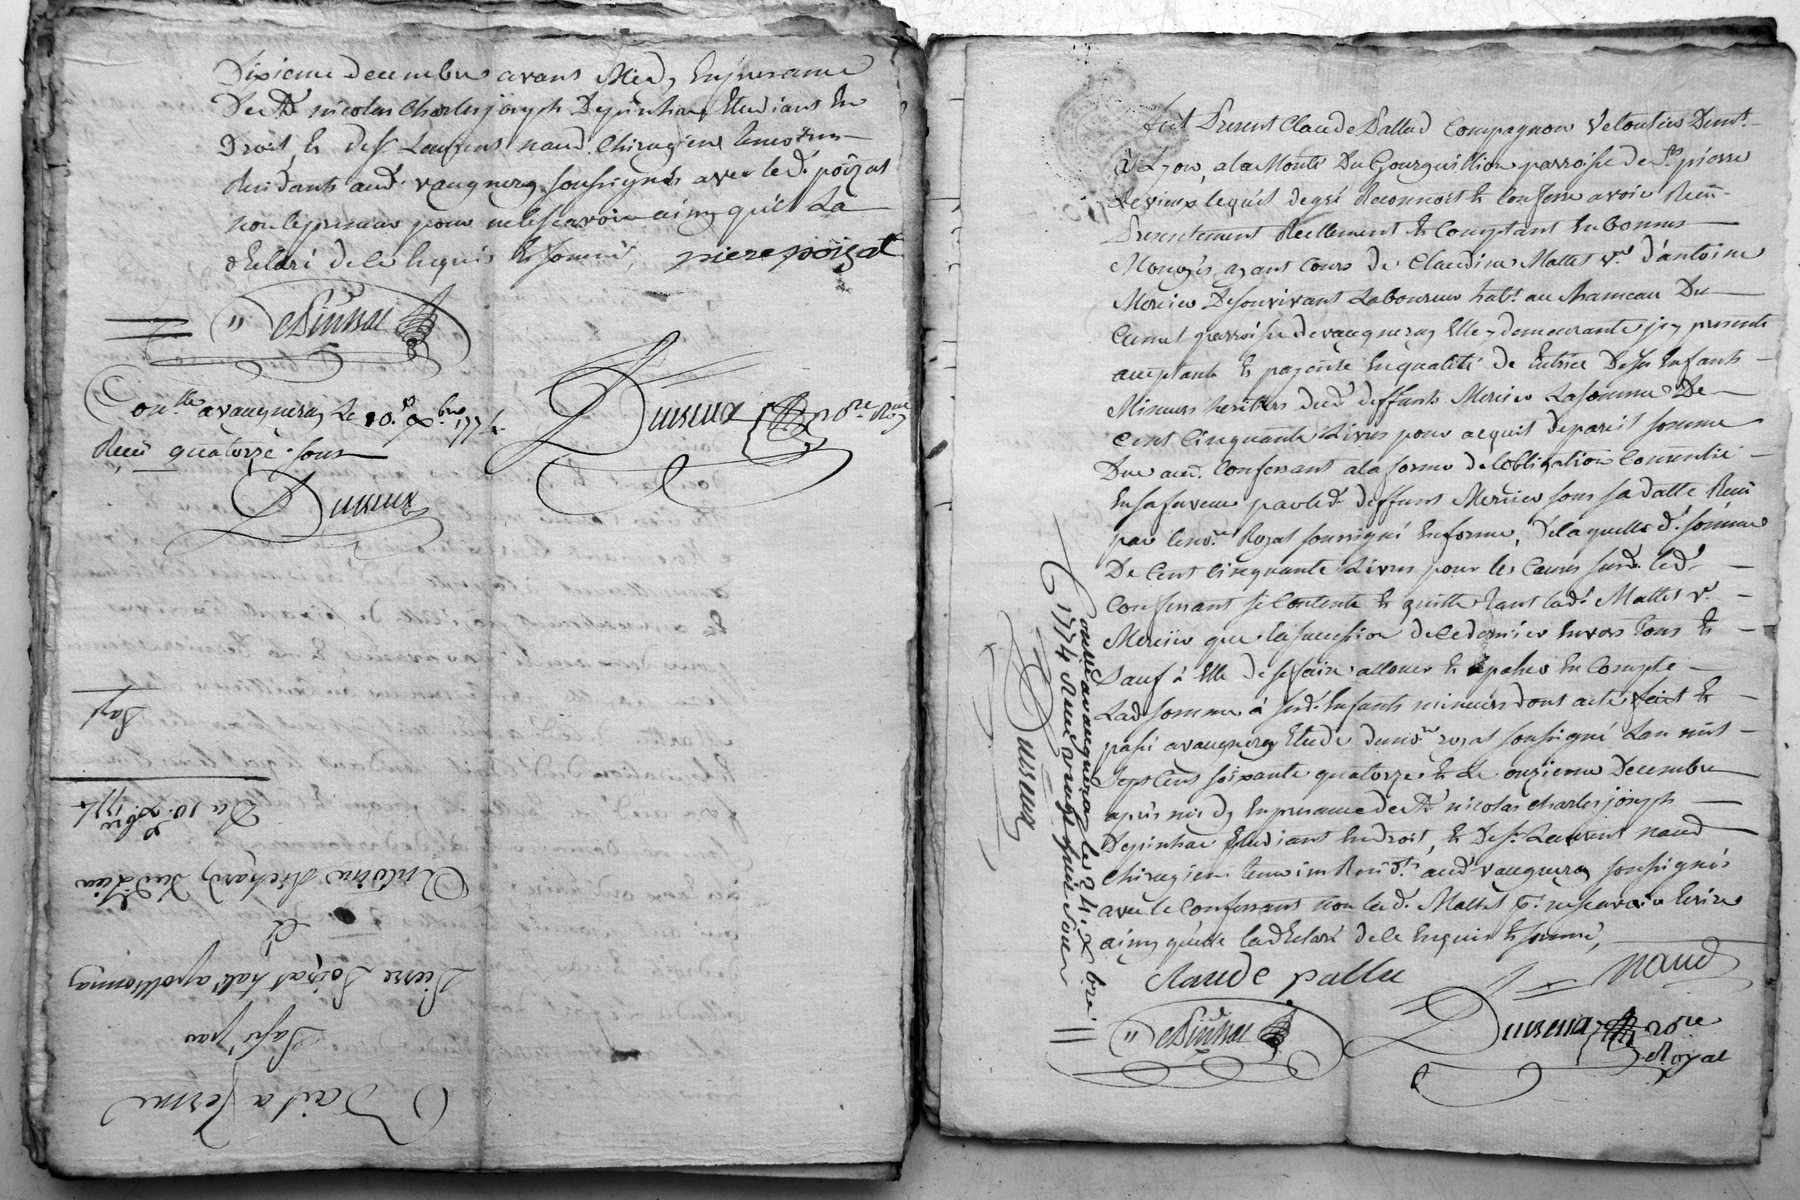 Dixieme decembre avant Midy, En presance
De sr nicolas Charles joseph Depinhac Etudiant En
Droit, & de sr Laurent naud Chirugien temoins
Residants aud. vaugneray soussignés avec led. poizat
non le preneur pour ne le scavoir ainsy qu'il La
declaré de ce Enquis & sommé, pierre poizat
DePinhac
Conlle a vaugneray Le 10e. Xbre 1774
Reçu quatorze sous
Duseux nore Royal
Duseux
Bail a ferme
Passé par
Pierre Poizat hab.t a pollionnay
à
Antoine Richard dud. Lieu
Du 10. Xbre 1774
Fut Present Claude Pallud Compagnon Veloutier Demt.
à Lyon, a la Montée Du Gourguillion parroisse de St. pierre
Le vieux lequel de gré Reconnoit & Confesse avoir Reçu
Presentement Reellement & Comptant En bonnes
Monoyes ayant Cours de Claudine Mattet ve. d'antoine
Mercier De son vivant Laboureur habt. au hameau Du
parroisse de vaugneray Elle y demeurante icy presente
acceptante & payante En qualité de tutrice De ses Enfants
Mineurs heritiers dud. deffunt Mercier La somme De
Cent Cinquante Livres pour acquit de pareil somme
Due aud. Confessant a la forme de l'obligation Consentie
En sa faveur par led. deffunt Mercier sous sa datte Reçu
par le nore. Royal soussigné En forme, de laquelle d. somme
De Cent Cinquante Livres pour les Causes susd. led.
Confessant se Contente & quitte tant lad. Mattet ve.
Mercier que la succession de ce dernier Envers tous &
Sauf à Elle de se faire allouer & passer En Compte
Lad. somme à sesd. Enfants mineurs dont acte fait &
passé a vaugneray Etude du nore. royal soussigné L'an mil
Sept Cent soixante quatorze & Le onzieme Decembre
après midy En presance de sr. nicolas charles joseph
Depinhac Etudiant En droit, & de sr. Laurent naud
Chirugien temoins Residts. aud. vaugneray soussignés
avec le Confessant non lad. Mattet pr. ne scavoir Ecrire
ainsy qu'elle La declaré de ce Enquis & sommé,
claude pallu
naud
DePinhac
Duseux nore
Royal
Conllé a vaugneray le 24. Xbre
1774 Reçu vingt huit sous
Duseux